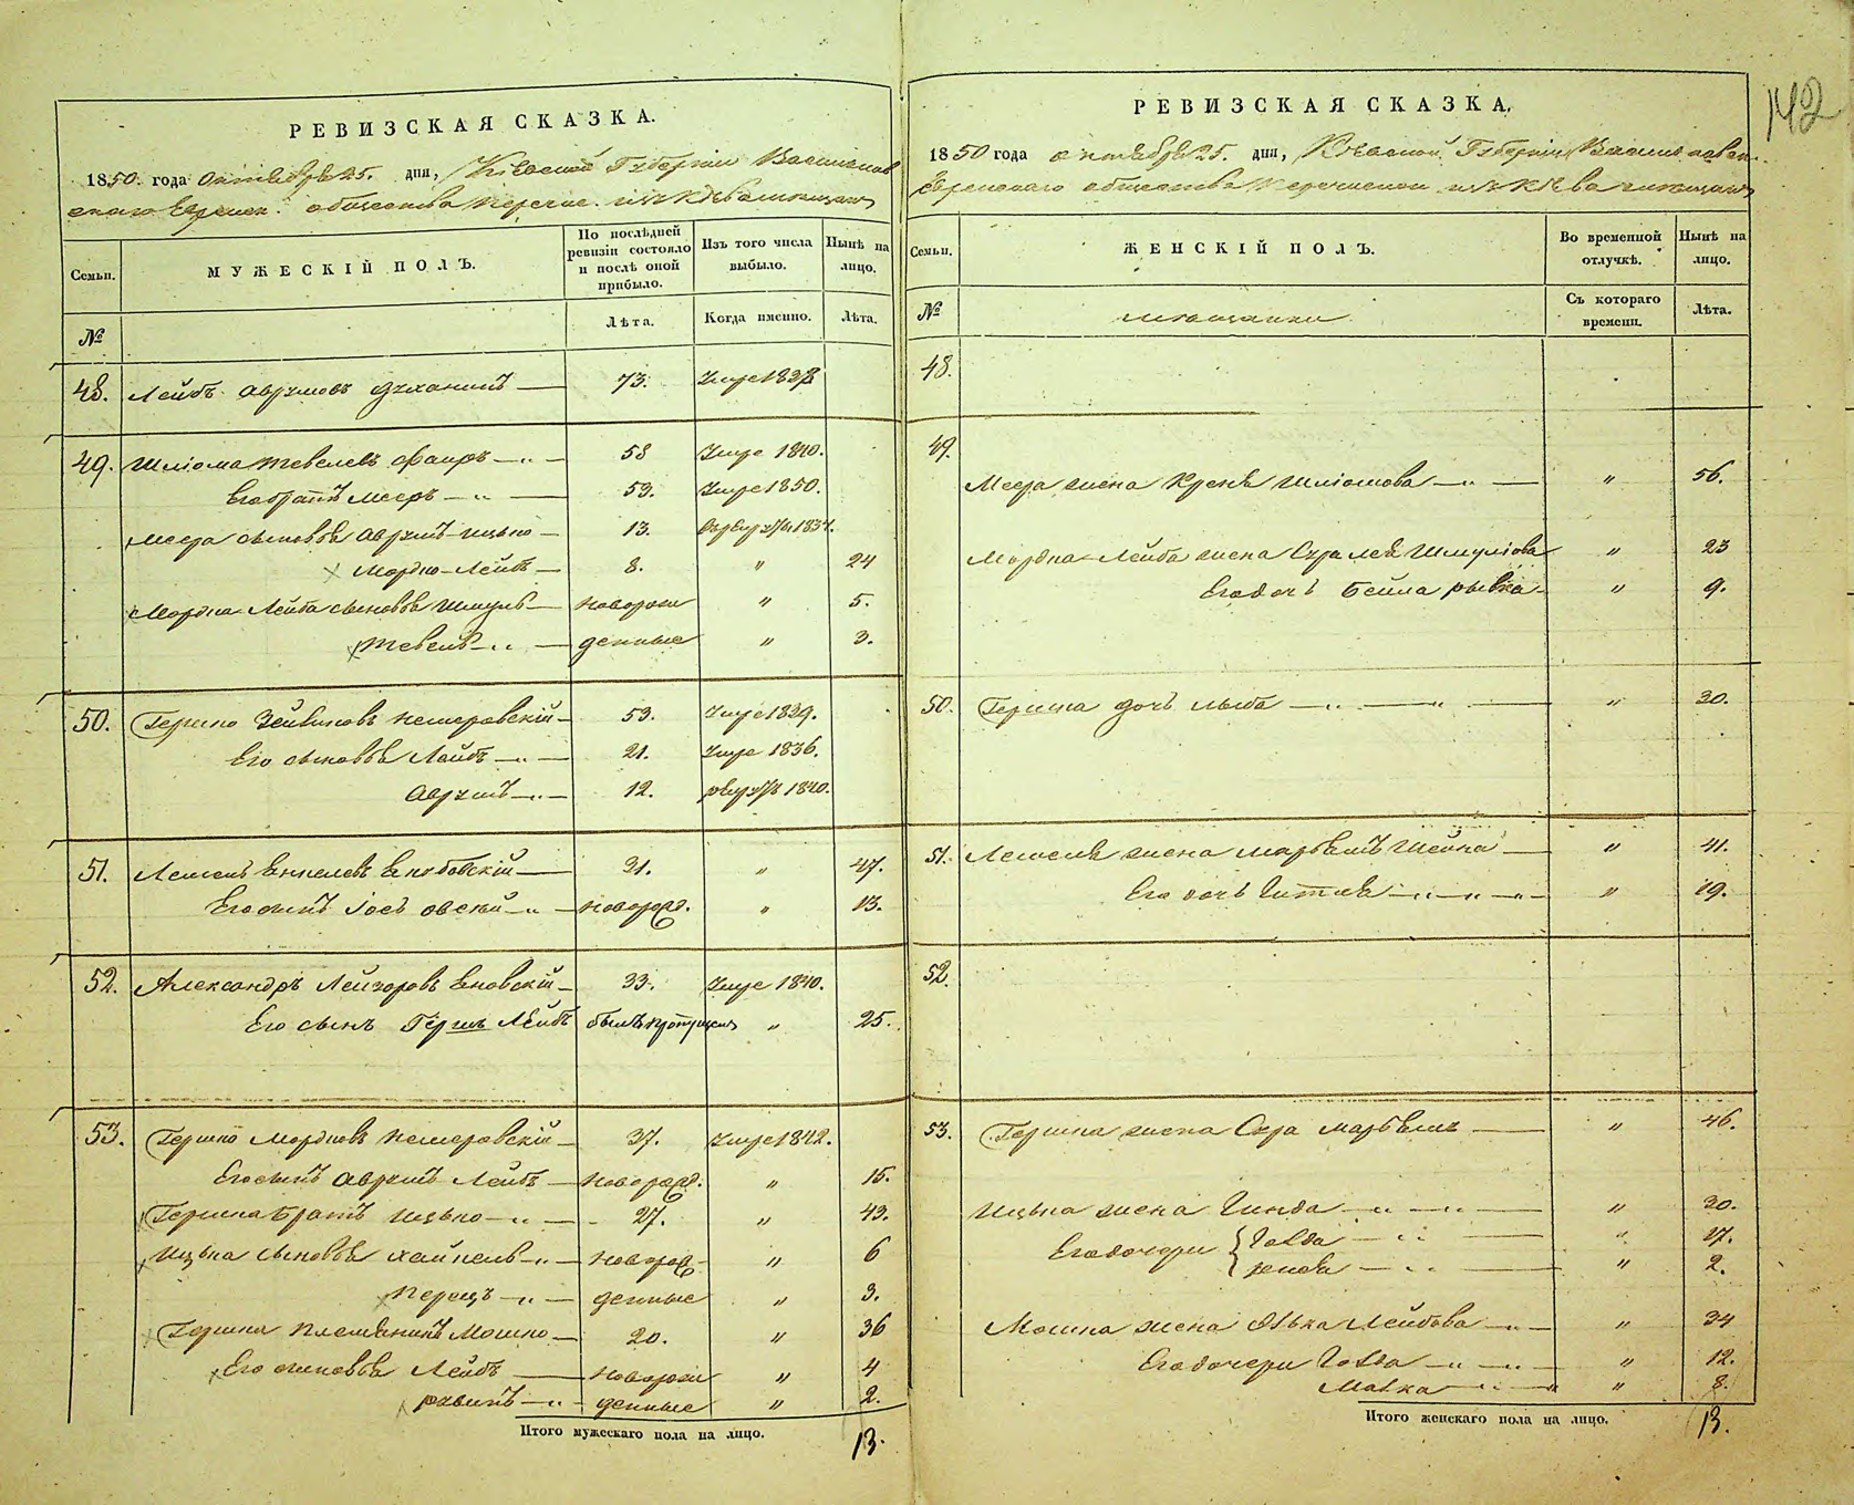 142
РЕВИЗСКАЯ СКАЗКА.
1850. года октября 25. дня, Кіевской Губерніи Васильков
скаго Еврейск. общества перечис. изъ Кіева мещанъ
Семьи. МУЖЕСКІЙ ПОЛЪ. По послѣдней ревизіи состояло и послѣ оной прибыло. Изъ того числа выбыло. Нынѣ на лицо.
№ Лѣта. Когда именно. Лѣта.
48. Лейбъ Аврумовъ 73. Умре 1838
49. Шліома Тевелевъ Фаиръ 58 Умре 1840.
Его братъ Мееръ 53. Умре 1850.
Меера сыновья Аврумъ-Ицько 13. 1837.
Мордко-Лейбъ 8. " 24
Мордка Лейба сыновья Шмуль новорож " 5.
Тевель денные " 3.
50. Гершко Зейликовъ Немеровскій 53. Умре 1839.
Его сыновья Лейбъ 21. Умре 1836.
Аврумъ 12. рекрут 1840.
51. 31. " 47.
Его сынъ Іосъ овсѣй новорожд. " 13.
52. Александръ Лейзоровъ Яновскій 33. Умре 1840.
Его сынъ Гершъ Лейбъ былъ пропущенъ " 25.
53. Гершко Мордковъ Немеровскій 37. Умре 1842.
Его сынъ Аврумъ Лейбъ новорожд. " 15.
Гершка братъ Ицько 27. " 43.
Ицька сыновья Хаимъ новорож " 6
Перецъ денные " 3.
Гершка племянникъ Мошко 20. " 36
Его сыновья Лейбъ новорож " 4
Рувинъ денные " 2.
Итого мужескаго пола на лицо. 13.
РЕВИЗСКАЯ СКАЗКА.
1850 года октября 25. дня, Кіевской Губерніи Васильковск
Еврейскаго общества перечислен изъ Кіева мещанъ
Семьи. ЖЕНСКІЙ ПОЛЪ. Во временной отлучкѣ. Нынѣ на лицо.
№ мещанки Съ котораго времени. Лѣта.
48.
49.
Меера жена Крейня Шліомова " 56.
Мордка-Лейба жена Сура Лея Шмуліова " 23
Его дочь Бейла рывка " 9.
50. Гершка дочь " 30.
51. жена Марьямъ Шейна " 41.
Его дочь Гитля " 19.
52.
53. Гершка жена Сура Марьямъ " 46.
Ицька жена Гинда " 30.
Его дочери Голда " 17.
" 2.
Мошка жена Лейбова " 34
Его дочери Голда " 12.
Малка " 8.
Итого женскаго пола на лицо. 13.